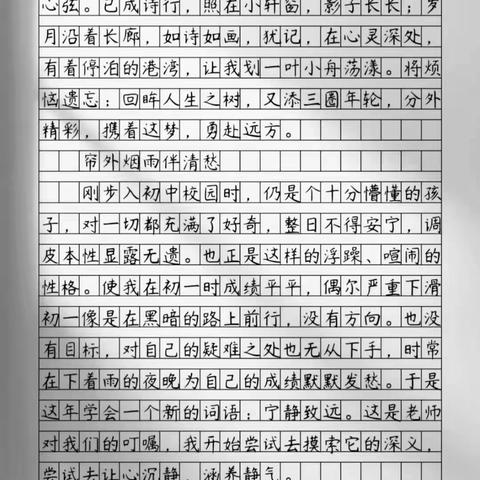 心弦。已成诗行，照在小轩窗，影子长长；岁
月沿着长廊，如诗如画，犹记，在心灵深处，
有着停泊的港湾，让我划一叶小舟荡漾。将烦
恼遗忘；回眸人生之树，又添三圈年轮，分外
精彩，携着这梦，勇赴远方。
帘外烟雨伴清愁
刚步入初中校园时，仍是个十分懵懂的孩
子，对一切都充满了好奇，整日不得安宁，调
皮本性显露无遗。也正是这样的浮躁、喧闹的
性格。使我在初一时成绩平平，偶尔严重下滑
初一像是在黑暗的路上前行，没有方向。也没
有目标，对自己的疑难之处也无从下手，时常
在下着雨的夜晚为自己的成绩默默发愁。于是
这年学会一个新的词语：宁静致远。这是老师
对我们的叮嘱，我开始尝试去摸索它的深义，
尝试去让心沉静，涵养静气。